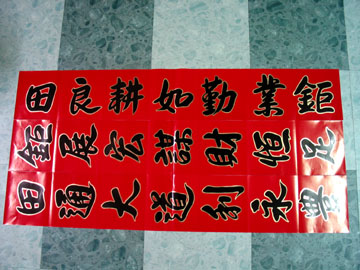 鉅業勤如耕良田
鉅展宏謀財恒足
田通大道利永豐